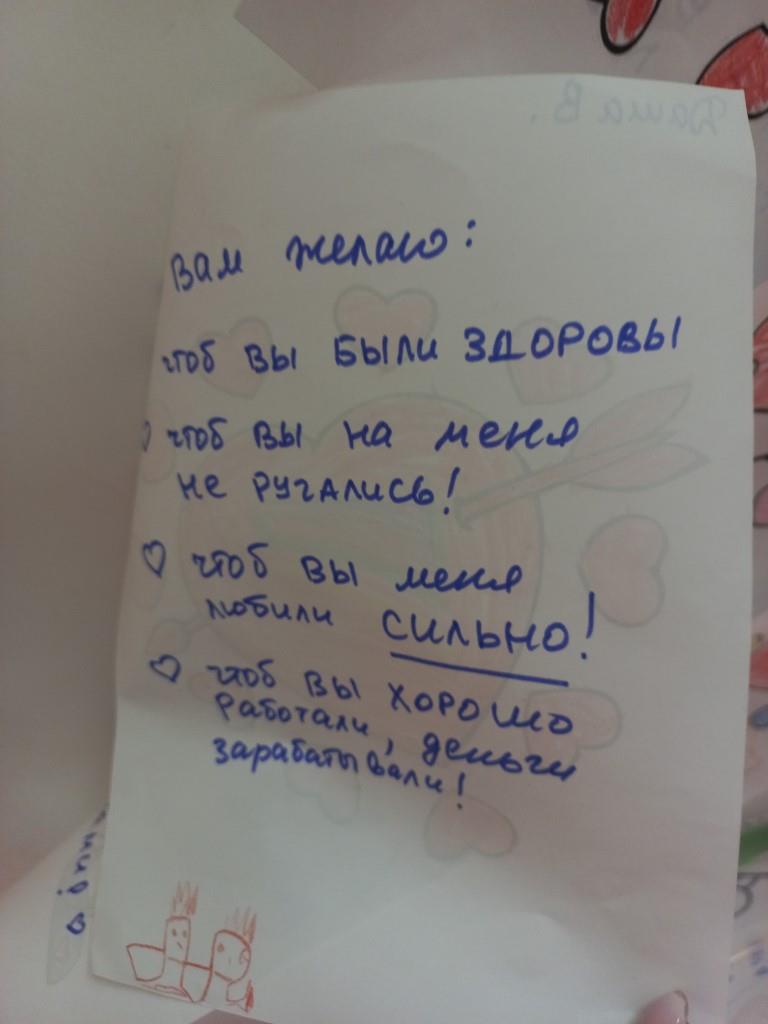 Даша В.
Вам желаю:
чтоб вы были ЗДОРОВЫ
чтоб вы на меня
не ругались!
чтоб вы меня
любили сильно!
чтоб вы хорошо
работали, деньги
зарабатывали!